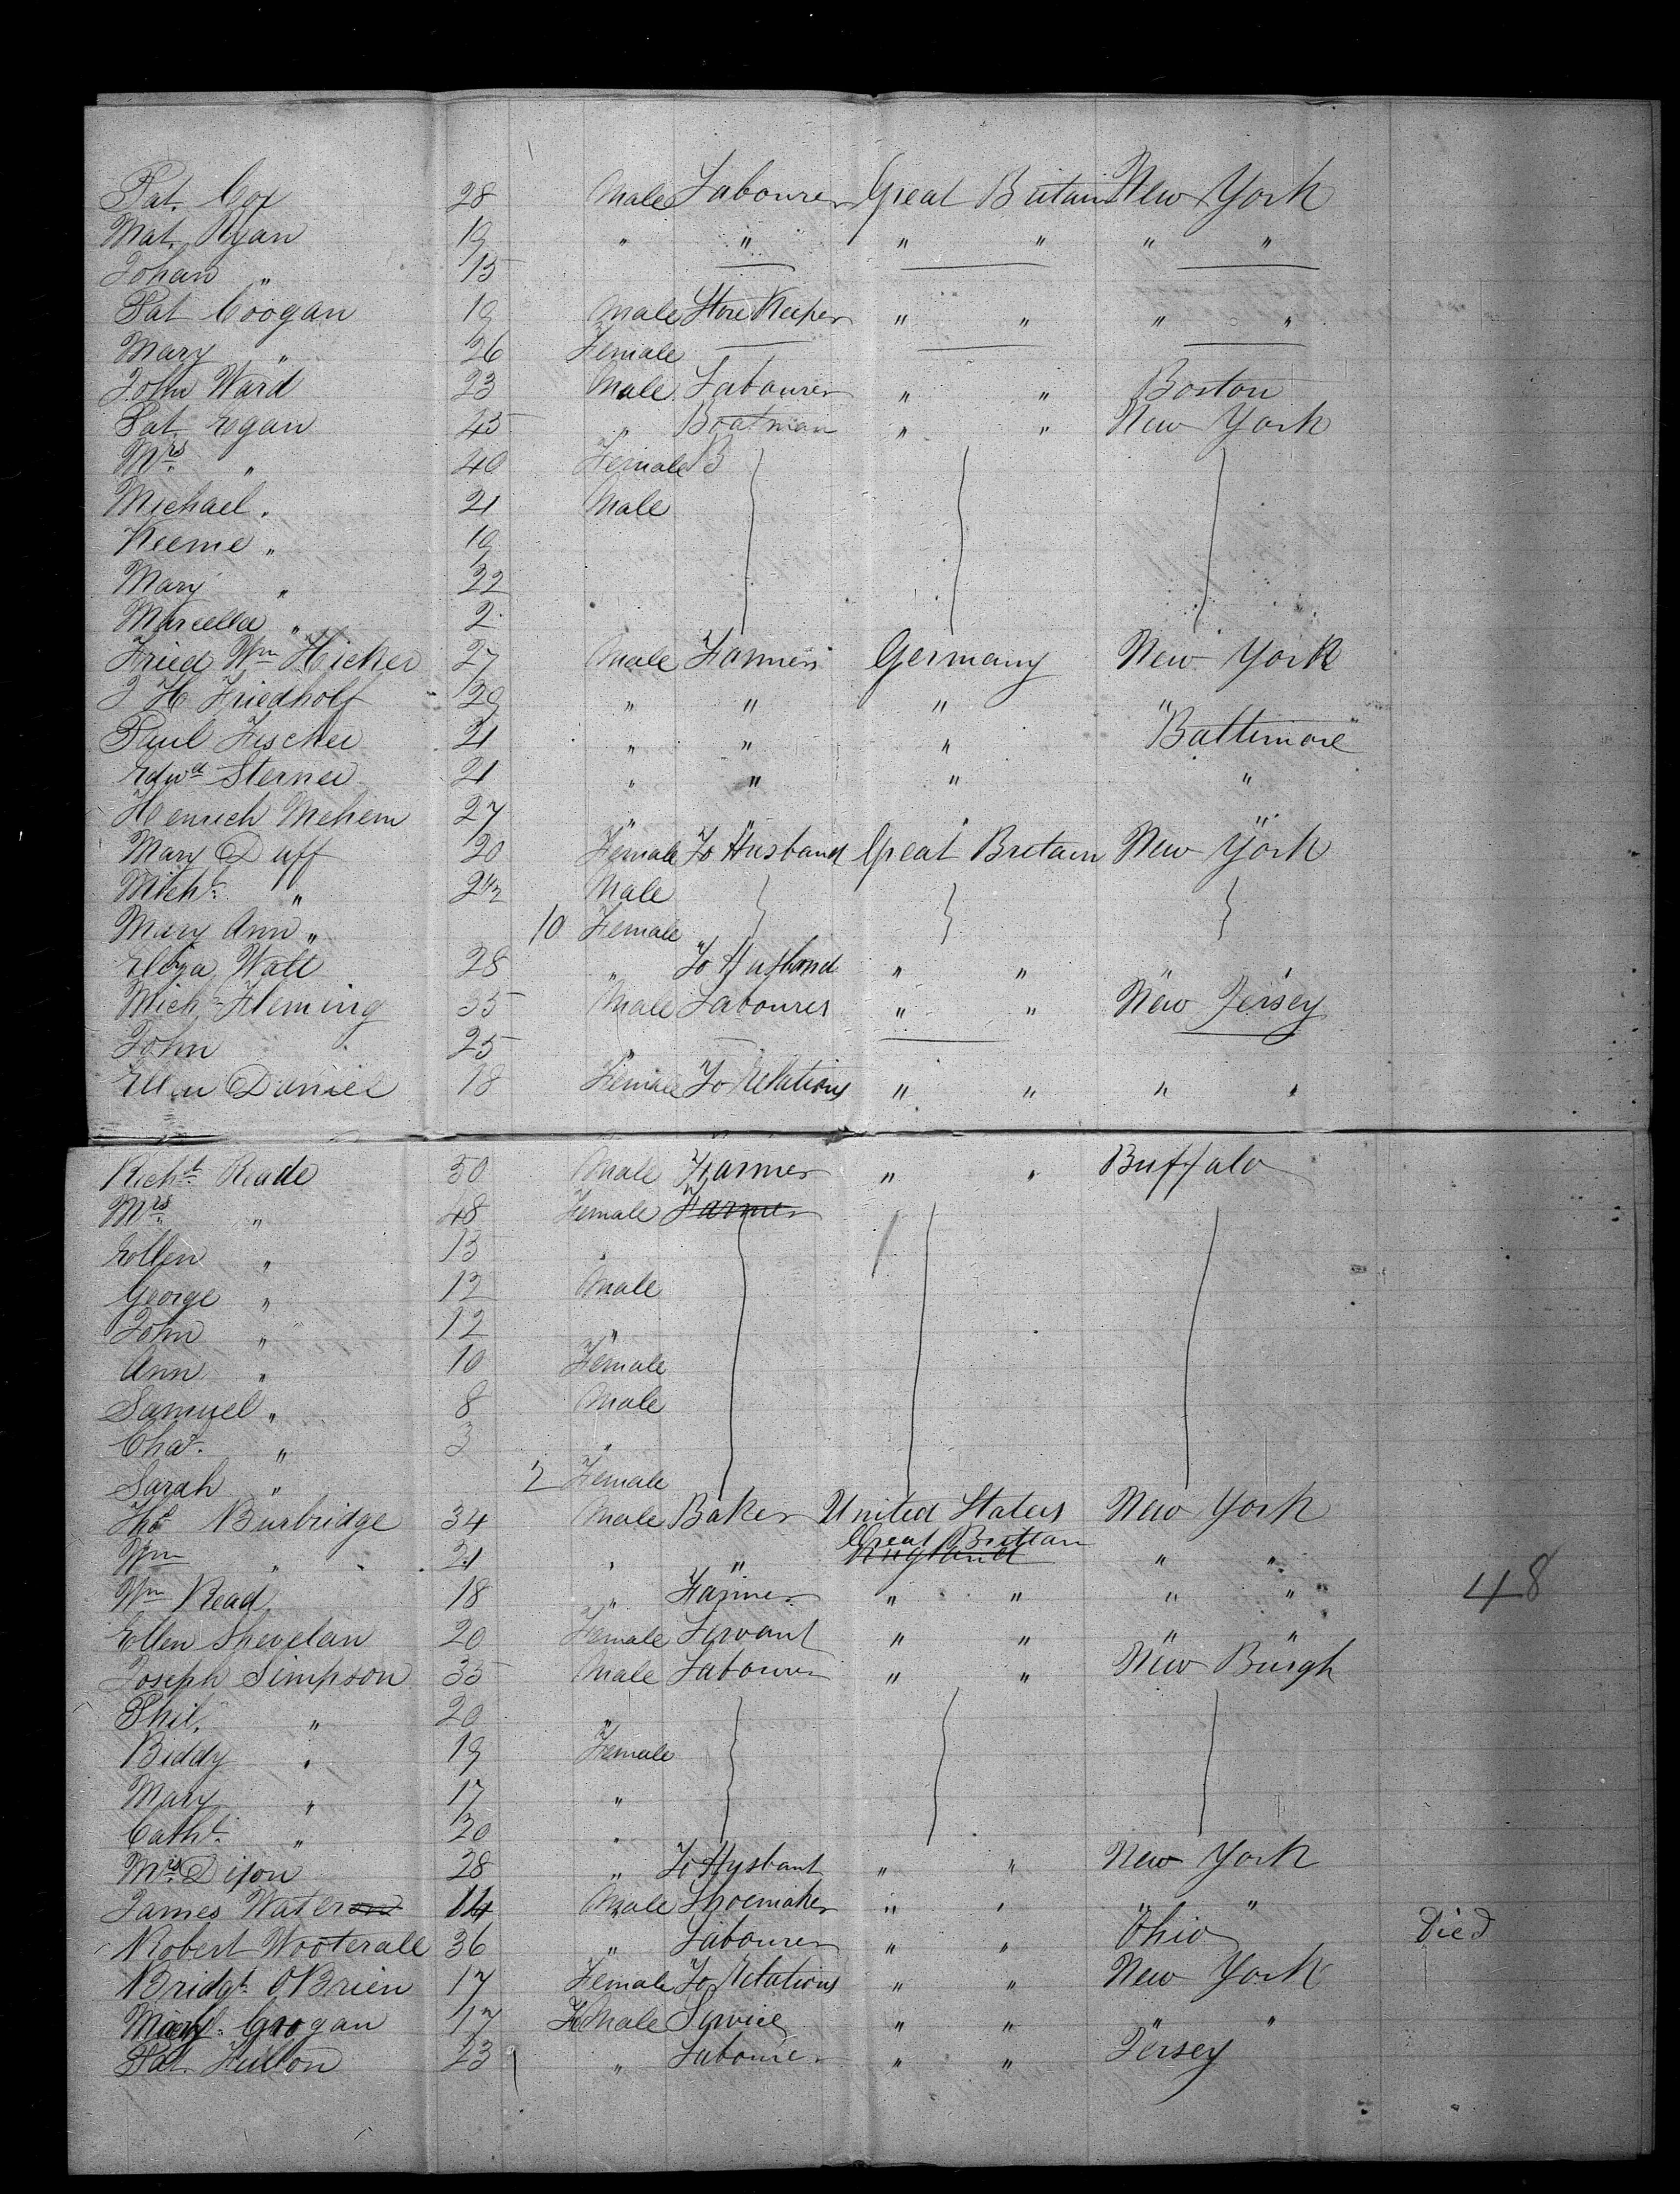 Pat. Cox 28 Male Labourer Great Britain New York
Mat. Ryan 19 " " " " " "
Johan " 15
Pat Coogan 19 Male Store Keeper " " " "
Mary " 26 Female
John Ward 23 Male Labourer " " Boston
Pat Egan 45 " Boatman " " New York
Mrs. " 40 Female B
Michael " 21 Male
Keeme " 19
Mary " 22
Marcella " 2
Fried Wm Hicker 27 Male Farmer Germany New York
J H Friedholf 29 " " " "
Paul Fischer 21 " " " Baltimore
Edwd Sterner 21 " " " "
Henrich Mehem 27 " " " "
Mary Duff 20 Female To Husband Great Britain New York
Michl. " 2 1/2 Male
Mary Ann " 10 Female
Eliza Wall 28 " To Husband " " " "
Michl Fleming 35 Male Labourer " " New Jersey
John 25 "
Ellen Daniel 18 Female To Relations " " " "
Richd. Reade 50 Male Farmer " " Buffalo
Mrs. " 48 Female Farmer
Ellen " 13 "
George " 12 Male
John " 12 "
Ann " 10 Female
Samuel " 8 Male
Chas. " 3 "
Sarah " 1/2 Female
Thos Burbridge 34 Male Baker United States New York
Wm " 21 " " England Great Brittan " "
Wm Read 18 " Farmer " " " " 48
Ellen Shevelan 20 Female Servant " " " "
Joseph Simpson 35 Male Labourer " " New Burgh
Phil. " 20 "
Biddy " 19 Female
Mary " 17 "
Catht. " 20 "
Mrs. Dixon 28 " To Husbant " " New York
James Waterson 14 Male Shoemaker " " " "
Robert Wooterall 36 " Labourer " " Ohio Died
Bridgt. OBrien 17 Female To Relations " " New York
Mary. Grogan 17 FeMale Service " " " "
Pat. Fulton 23 " Labourer " " Jersey